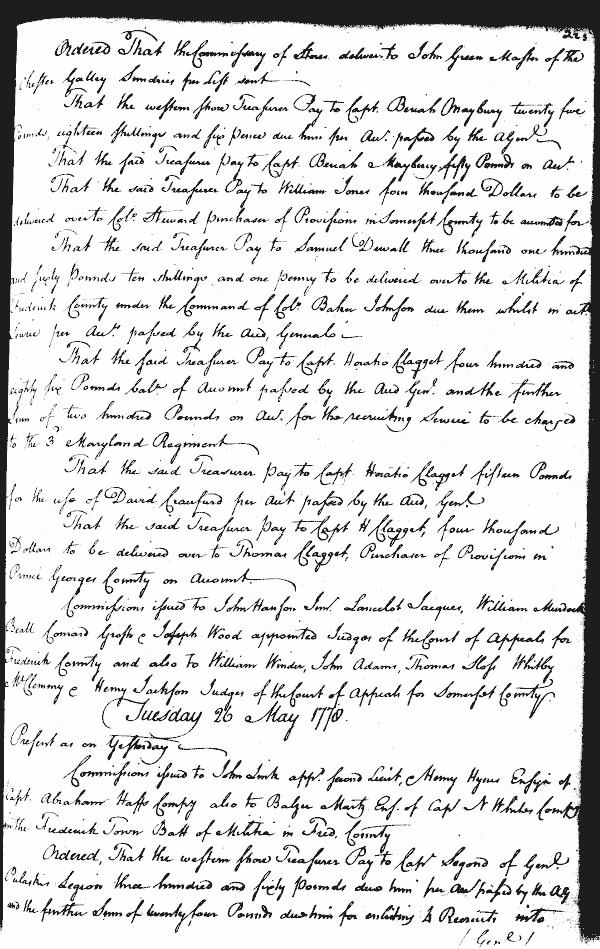 Ordered That the Commissary of Stores deliver to John Green Master of the
Chester Galley Sundries per List sent
That the western shore Treasurer Pay to Capt. Beriah Maybury twenty five
Pounds, eighteen shillings and six pence due him per Acc.t passed by the A Genl.
That the said Treasurer pay to Capt. Beriah Maybury fifty Pounds on Acc.t
That the said Treasurer Pay to William Jones four thousand Dollars to be
delivered over to Colo. Steward purchaser of Provisions in Somerset County to be accounted for
That the said Treasurer Pay to Samuel Dewall three thousand one hundred
and sixty Pounds ten shillings, and one penny to be delivered over to the Militia of
Frederick County under the Command of Colo. Baker Johnson due them whilst in act.
Service per Acc.t passed by the Aud, General
That the said Treasurer Pay to Capt. Horatio Clagget four hundred and
eighty six Pounds bal.e of Account passed by the Aud Genl. and the further
Sum of two hundred Pounds on Acc.t for the recruiting Service to be charged
to the 3d Maryland Regiment
That the said Treasurer pay to Capt Horatio Clagget fifteen Pounds
for the use of David Craufurd per Acc't passed by the Aud, Genl.
That the said Treasurer Pay to Capt H Clagget, four thousand
Dollars to be delivered over to Thomas Clagget, Purchaser of Provisions in
Prince Georges County on Account
Commissions issued to John Hanson Junr. Lancelot Jacques, William Murdock
Beall Conrad Grosh & Joseph Wood appointed Judges of the Court of Appeals for
Frederick County and also to William Winder, John Adams, Thomas Sloss Whitby
McClemmy & Henry Jackson Judges of the Court of Appeals for Somerset County
Tuesday 26 May 1778.
Present as on Yesterday
Commissions issued to John app.d second Lieut, Henry Hynes Ensign of
Capt. Abraham Haffs Compy also to Balzer Martz Ens. of Capt N Whites Comp.y
in the Frederick Town Batt of Militia in Fred, County
Ordered, That the western shore Treasurer Pay to Capt Segond of Genl.
Pulaskis Legion three hundred and sixty Pounds due him per Acc.t passed by the A G
and the further Sum of twenty four Pounds due him for enlisting 4 Recruits into
(Genl.)